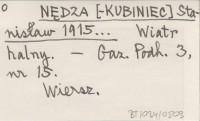 NĘDZA [-KUBINIEC] Sta-
nisław 1915... Wiatr
halny. — Gaz. Podh. 3,
nr 15.
Wiersz.